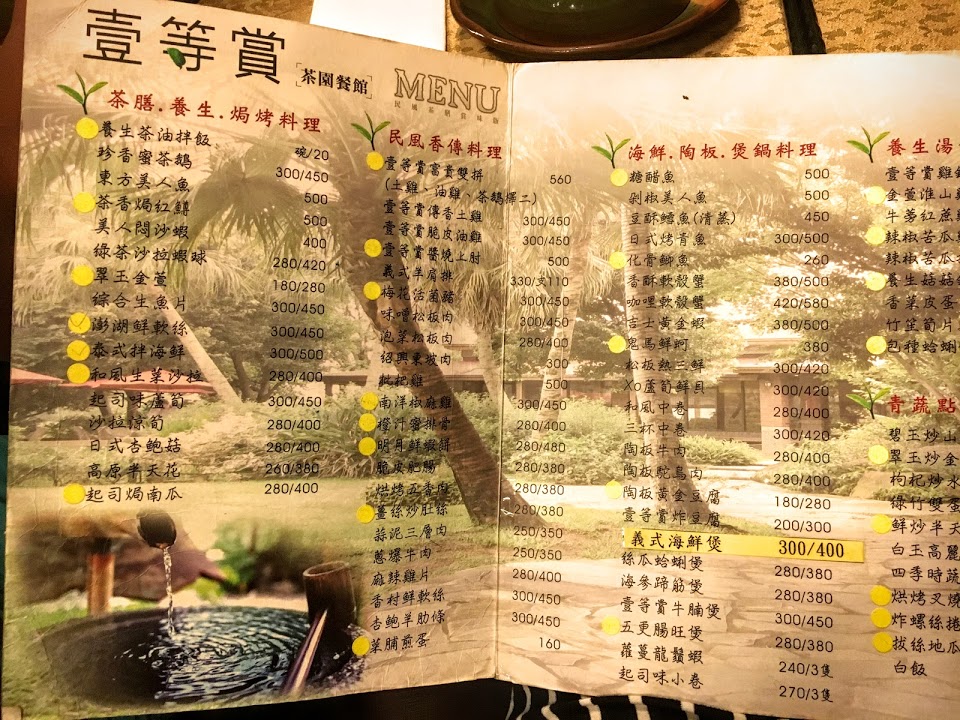 壹等賞
茶園餐館
MENU
茶膳.養生.焗烤料理
養生茶油拌飯 碗/20
珍香蜜茶鵝 300/450
東方美人魚 500
茶香焗紅鱒 500
美人悶沙蝦 400
綠茶沙拉蝦球 280/420
翠玉金萱 180/280
綜合生魚片 300/450
澎湖鮮軟絲 300/450
泰式拌海鮮 300/500
和風生菜沙拉 280/400
起司味蘆筍 300/450
沙拉涼筍 280/400
日式杏鮑菇 280/400
高原半天花 260/380
起司焗南瓜 280/400
民風香傳料理
壹等賞富貴雙拼 560
(土雞、油雞、茶鵝擇二)
壹等賞傳香土雞 300/450
壹等賞脆皮油雞 300/450
壹等賞醬燒上肘 500
義式羊肩排 330/支110
梅花活菌豬 300/450
味噌松板肉 300/450
泡菜松板肉 280/400
紹興東坡肉 300
枇杷雞 500
南洋椒麻雞 300/450
橙汁醬排骨 280/400
明月鮮蝦餅 280/480
脆皮肥腸 280/400
烘烤五香肉 280/380
薑絲炒肚絲 280/380
蒜泥三層肉 250/350
蔥爆牛肉 250/350
麻辣雞片 280/400
香村鮮軟絲 300/450
杏鮑羊肋條 300/450
菜脯煎蛋 160
海鮮.陶板.煲鍋料理
糖醋魚 500
剁椒美人魚 500
豆酥鱈魚(清蒸) 450
日式烤青魚 300/500
化骨鯽魚 260
香酥軟殼蟹 380/500
咖哩軟殼蟹 420/580
吉士黃金蝦 380/500
鬼馬鮮蚵 380
松板熱三鮮 300/420
Xo蘆筍鮮貝 300/420
和風中卷 280/400
三杯中卷 300/420
陶板牛肉 280/400
陶板鴕鳥肉 280/400
陶板黃金豆腐 180/280
壹等賞炸豆腐 200/300
義式海鮮煲 300/400
絲瓜蛤蜊煲 280/380
海參蹄筋煲 280/380
壹等賞牛腩煲 300/450
五更腸旺煲 280/380
蘿蔓龍鬚蝦 240/3隻
起司味小卷 270/3隻
養生湯
壹等賞雞
金萱淮山
牛蒡紅蔗
辣椒苦瓜
辣椒苦瓜
養生菇菇
香菜皮蛋
竹笙筍片
包種蛤蜊
青蔬點
碧玉炒山
翠玉炒金
枸杞炒水
綠竹雙蛋
鮮炒半天
白玉高麗
四季時蔬
烘烤叉燒
炸螺絲捲
拔絲地瓜
白飯